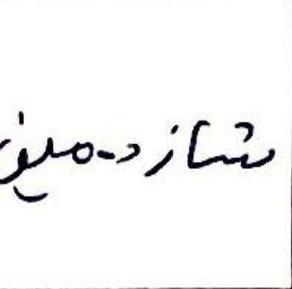 شانزده میلیون